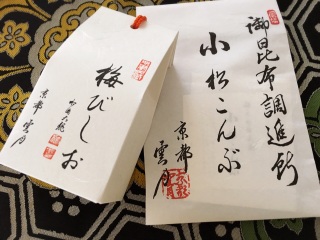 御昆布調進所
小松こんぶ
京都
雲月
梅びしお
京都 雲月